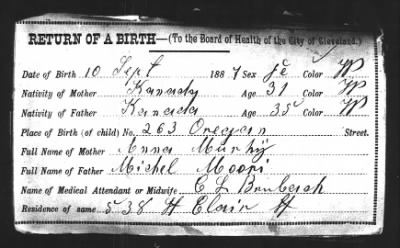 RETURN OF A BIRTH—(To the Board of Health of the City of Cleveland.)
Date of Birth 10 Sept 1887 Sex fe Color W
Nativity of Mother Kanady Age 31 Color W
Nativity of Father Kanada Age 35 Color W
Place of Birth (of child) No. 263 Oregan Street.
Full Name of Mother Anna Murhÿ
Full Name of Father Michel Moori
Name of Medical Attendant or Midwife C L
Residence of same 538 St Clair St